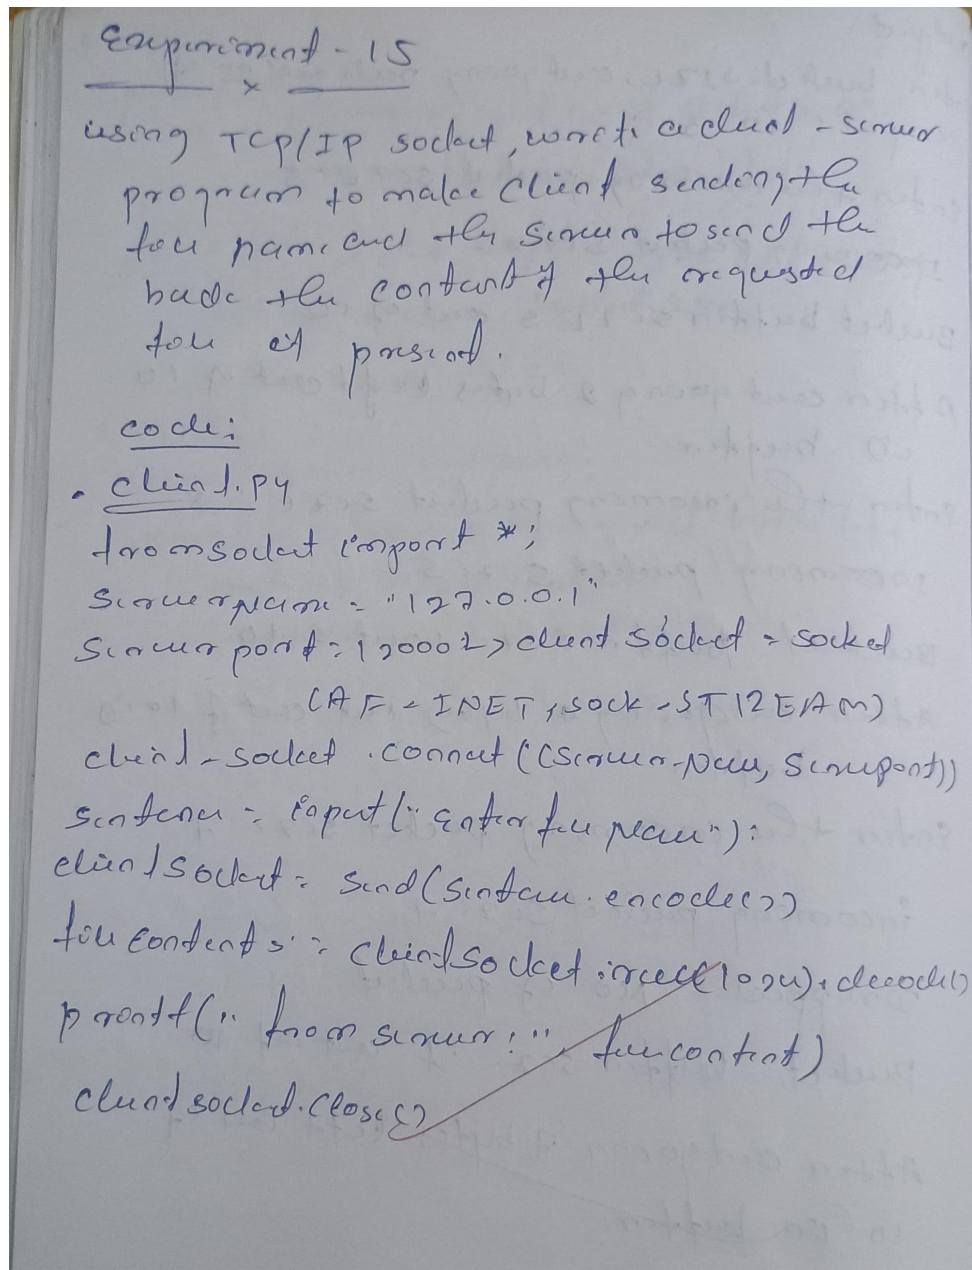 Experiment - 15
x
using TCP/IP socket, write a client - server
program to make client sending the
file name and the server to send the
back the contents of the requested
file if present.
code:
• client.py
from socket import *;
servername = "127.0.0.1"
Server port = 12000 client socket = socket
(AF - INET, sock - STREAM)
client - socket .connect((server-name, serverport))
sentence = input("Enter file name"):
clientsocket = send(sentence.encode())
file contents = clientsocket.recv(1024).decode()
printf(" from server:", filecontent)
clientsocket.close()